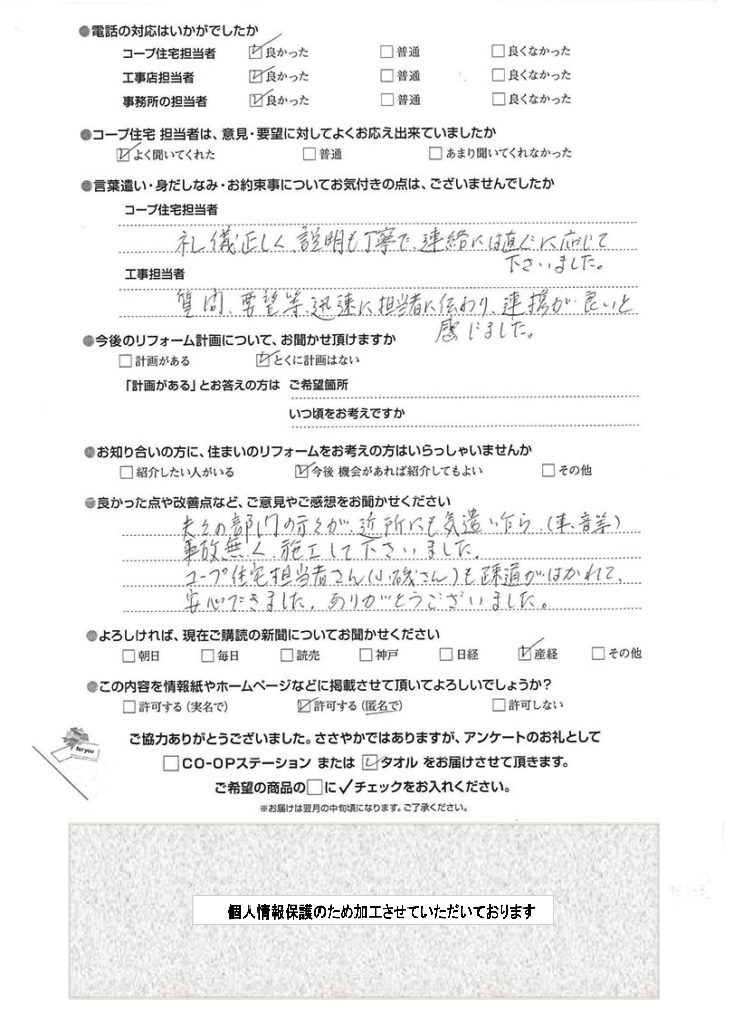 ●電話の対応はいかがでしたか
コープ住宅担当者 ☑良かった □普通 □良くなかった
工事店担当者 ☑良かった □普通 □良くなかった
事務所の担当者 ☑良かった □普通 □良くなかった
●コープ住宅 担当者は、意見・要望に対してよくお応え出来ていましたか
☑よく聞いてくれた □普通 □あまり聞いてくれなかった
●言葉遣い・身だしなみ・お約束事についてお気付きの点は、ございませんでしたか
コープ住宅担当者
礼儀正しく、説明も丁寧で、連絡には直ぐに応じて
下さいました。
工事担当者
質問、要望等、迅速に担当者に伝わり、連携が良いと
感じました。
●今後のリフォーム計画について、お聞かせ頂けますか
□計画がある ☑とくに計画はない
「計画がある」とお答えの方は ご希望箇所
いつ頃をお考えですか
●お知り合いの方に、住まいのリフォームをお考えの方はいらっしゃいませんか
□紹介したい人がいる ☑今後 機会があれば紹介してもよい □その他
●良かった点や改善点など、ご意見やご感想をお聞かせください
夫々の部門の方々が、近所にも気遣いながら、(車、音等)
事故無く、施工して下さいました。
コープ住宅担当者さん(小磯さん)も疎通がはかれて、
安心できました。ありがとうございました。
●よろしければ、現在ご購読の新聞についてお聞かせください
□朝日 □毎日 □読売 □神戸 □日経 ☑産経 □その他
●この内容を情報紙やホームページなどに掲載させて頂いてよろしいでしょうか?
□許可する(実名で) ☑許可する(匿名で) □許可しない
for you
ご協力ありがとうございました。ささやかではありますが、アンケートのお礼として
□CO-OPステーション または ☑タオル をお届けさせて頂きます。
ご希望の商品の□に✓チェックをお入れください。
※お届けは翌月の中旬頃になります。ご了承ください。
個人情報保護のため加工させていただいております